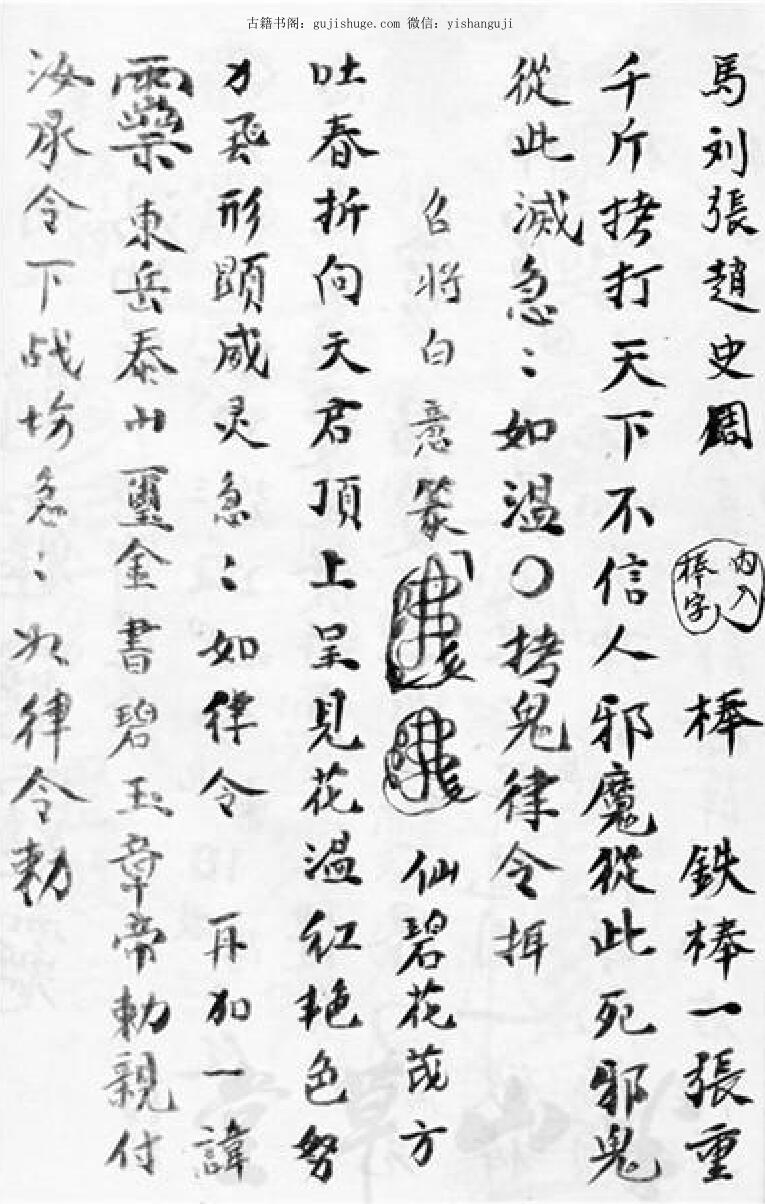 古籍书阁：gujishuge.com 微信：yishanguji
馬刘張趙史周
内入
棒字
棒 鉄棒一張重
千斤拷打天下不信人邪魔從此死邪鬼
從此滅急〻如温〇拷鬼律令
召将白意篆 仙碧花茂方
吐春折向天君頂上呈見花温红艳色努
力飛形顕威灵急〻如律令 再加一諱
東岳泰山璽金書碧玉章帝勅親付
汝承令下战場急〻如律令勅